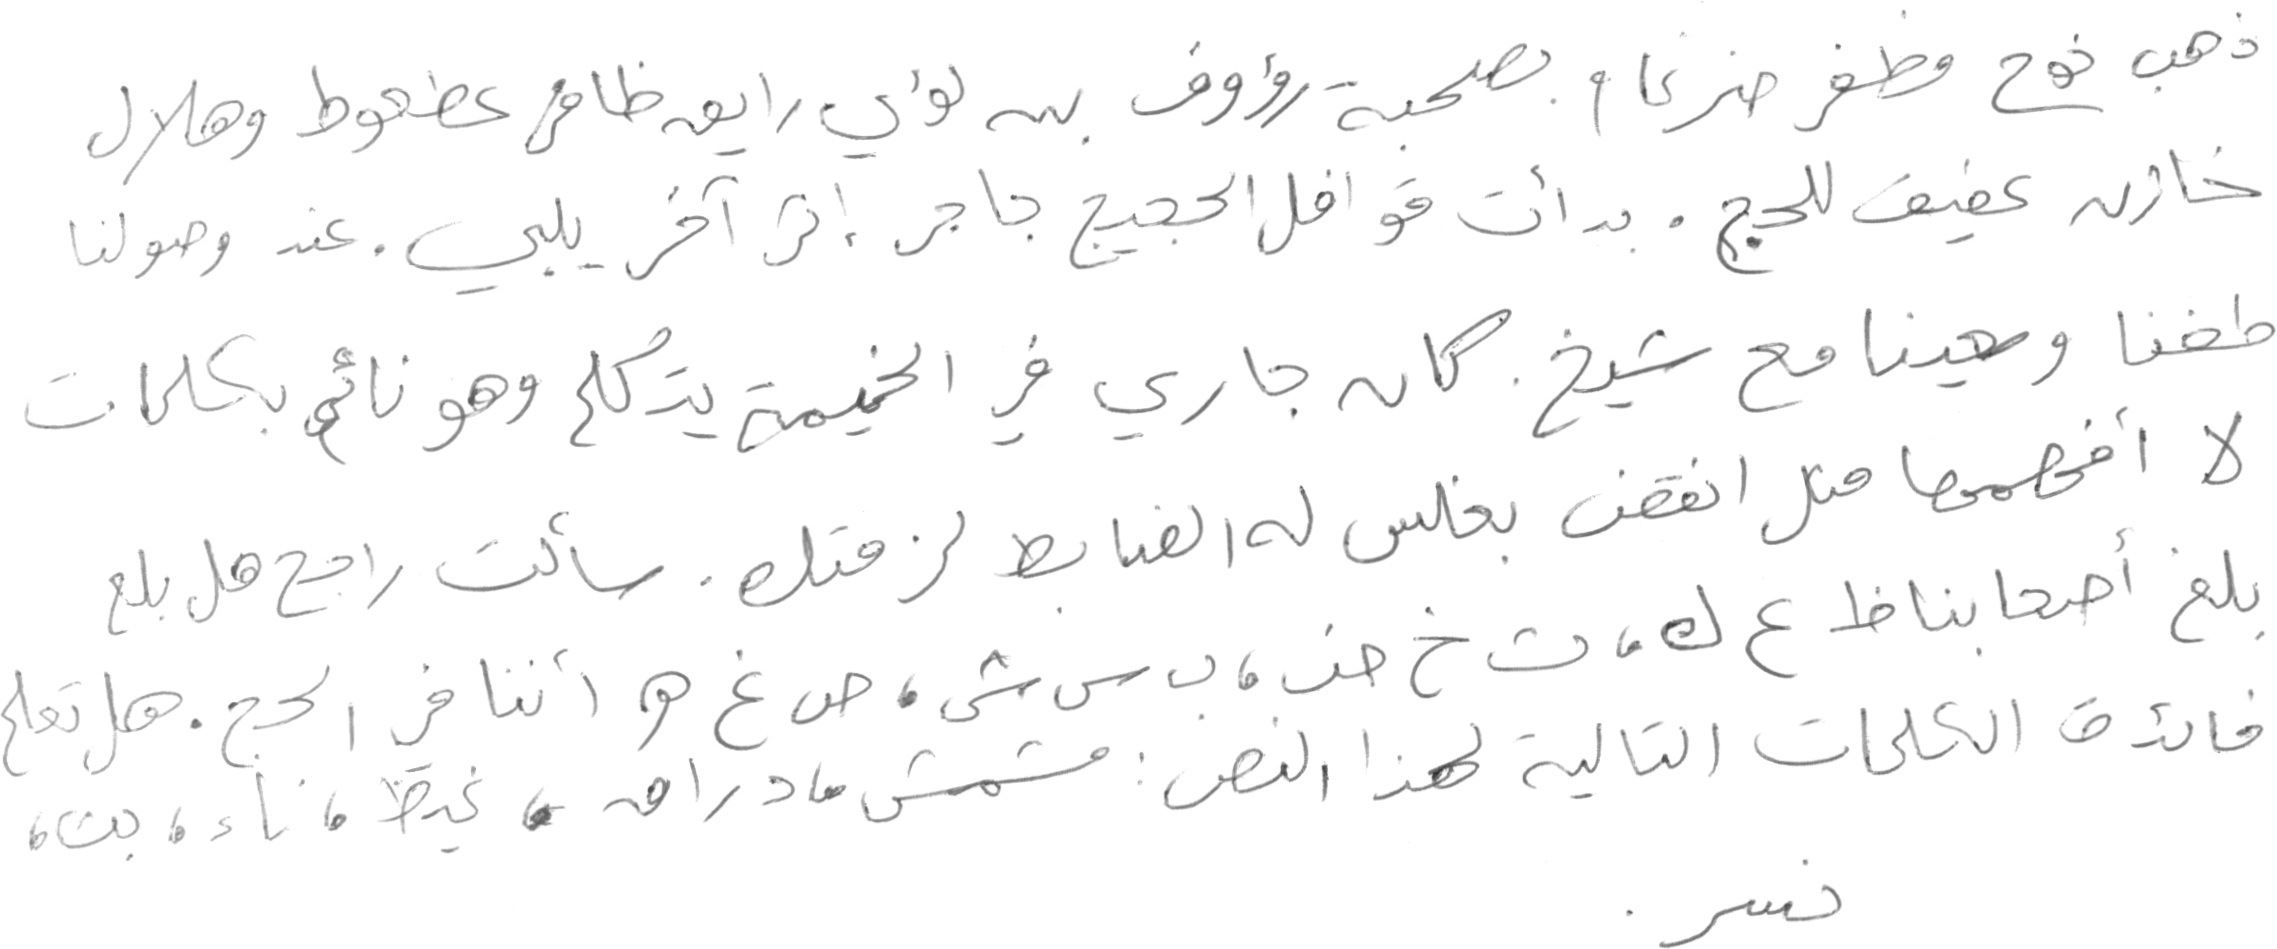 ذهب نوح ومظفر ضرغام بصحبة رؤوف بن لؤي رايق ظافر عظعوط وهلال
خازن عفيف للحج . بدأت قوافل الحجيج حاجر إثر آخر يلبي . عند وصولنا
طفنا وسعينا مع شيخ . كان جاري في الخيمة يتكلم وهو نائم بكلمات
لا أفهمها مثل انقض بغلس له الضابط لز قتك . سألت راجح هل بلغ
بلغ أصحابنا ظ ع ك ، ث خ ض ، ب س ش ، ص غ ه أننا في الحج . هل تعلم
فائدة الكلمات التالية لهذا النص : مشمش ، دراق ، غيظ ، ناء ، بت ،
نسر .